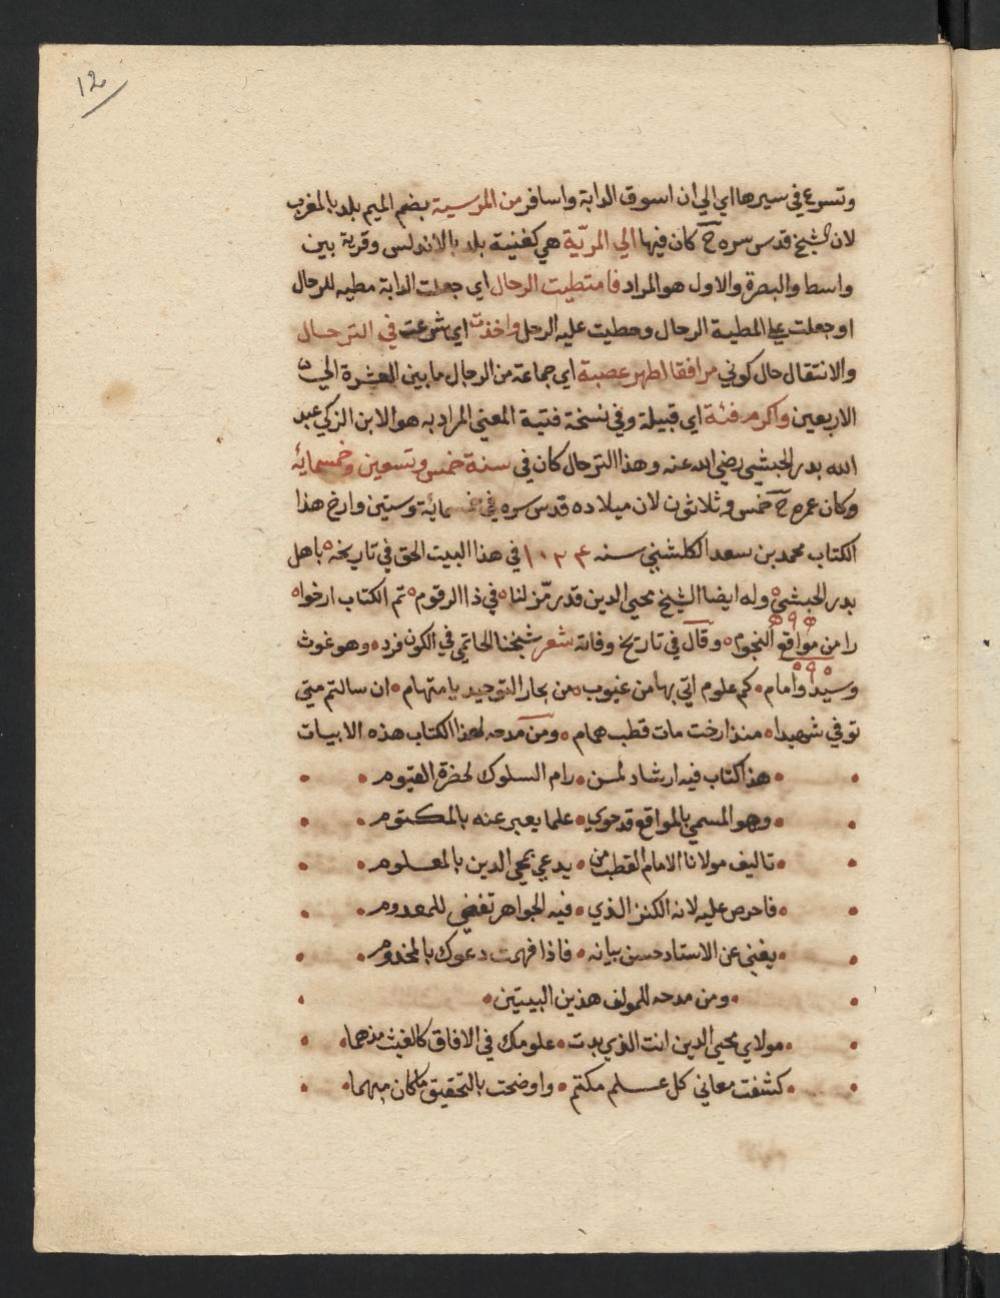 12
وتسرع في سيرها اي الي ان اسوق الدابة واسافر من المرسية بضم الميم بلد بالمغرب
لان الشيخ قدس سره ح كان فيها الي المريّة هي كغنية بلد بالاندلس وقرية بين
واسط والبصرة والاول هو المراد فامتطيت الرحال اي جعلت الدابة مطيه للرحال
او جعلت علي المطية الرحال وحطيت عليه الرحل واخذت اي شرعت في الترحال
والانتقال حال كوني مرافقا اطهر عصبة اي جماعة من الرجال ما بين العشرة الي
الاربعين واكرم فئة اي قبيلة وفي نسخة فتية المعني المراد به هو الابن الزكي عبد
الله بدر الحبشي رضي الله عنه وهذا الترحال كان في سنة خمس وتسعين وخمسمائة
وكان عمره ح خمس و ثلاثون لان ميلاده قدس سره في خمسمائة وستين وارخ هذا
الكتاب محمد بن سعد الكلشني سنه ١٠٢٤ في هذا البيت الحق في تاريخه باهل
بدر الحبشي وله ايضا الشيخ محيي الدين قد رمّز لنا في ذا الرقوم تم الكتاب ارخوا
را من مواقع النجوم وقال في تاريخ وفاته شعر شيخنا الحاتمي في الكون فرد وهو غوث
٥٩٥
وسيد وامام كم علوم اتي بها من غيوب من بحار التوحيد يا مستهام ان سالتم متي
توفي شهيدا منذ ارخت مات قطب همام ومن مدحه لهذا الكتاب هذه الابيات
هذا كتاب فيه ارشاد لمن رام السلوك لحضرة القيوم
وهو المسمي بالمواقع قد حوي علما يعبر عنه بالمكتوم
تاليف مولانا الامام القطب من يدعي بمحي الدين بالمعلوم
فاحرص عليه لانه الكنز الذي فيه الجواهر تفضي للمعدوم
يغني عن الاستاد حسن بيانه فاذا فهمت دعوك بالمخدوم
ومن مدحه للمولف هذين البيتين
مولاي محيي الدين انت الذي بدت علومك في الافاق كالغيث مذ هما
كشفت معاني كل علم مكتم واوضحت بالتحقيق ما كان مبهما